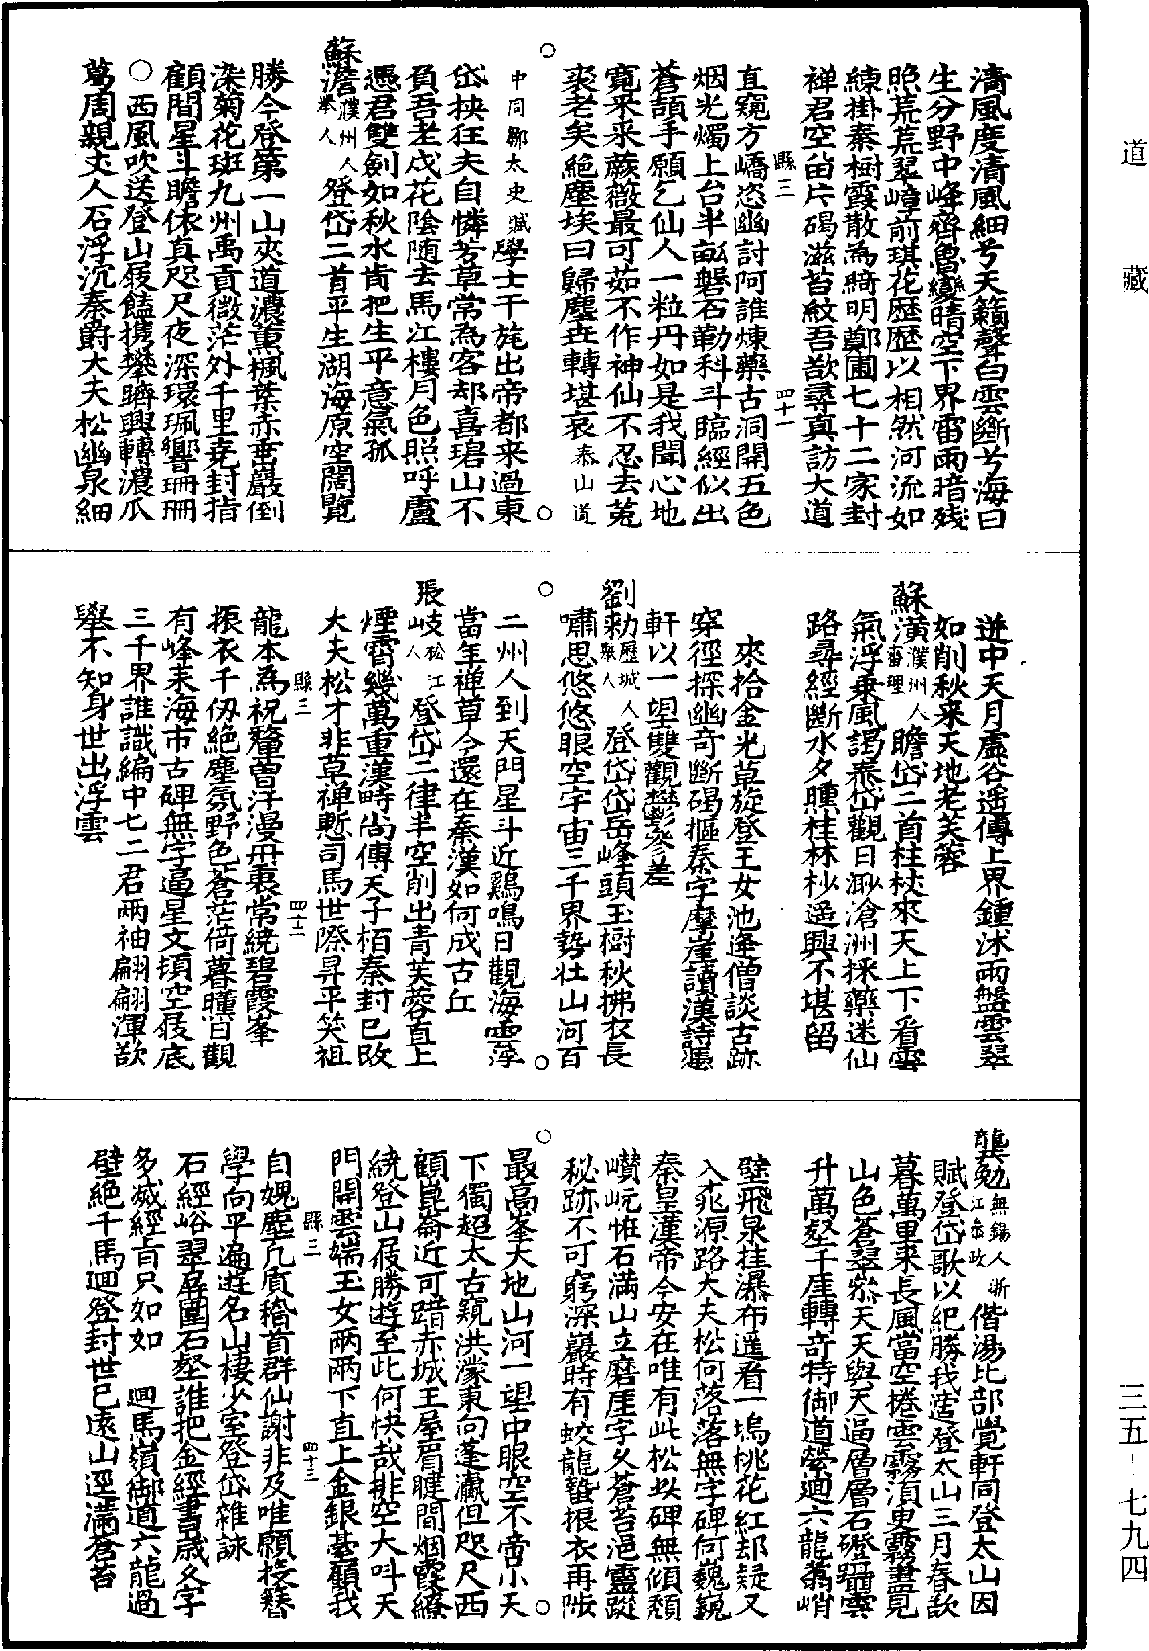 道藏
清風度清風細兮天籟聲白雲斷兮海日
生分野中峰齊魯變晴空下界雷雨暗殘
照荒荒翠嶂前琪花歷歷以相然河流如
練掛秦樹霞散為綺明鄭圃七十二家封
禪君空留片碣滋苔紋吾欲尋真訪大道
縣三 四十一
直窺方嶠恣幽討阿誰煉藥古洞開五色
烟光燭上台半畝磐石勒科斗臨經似出
蒼頡手願乞仙人一粒丹如是我聞心地
寬釆釆蕨薇最可茹不作神仙不忍去菟
裘老矣絕塵埃曰歸塵世轉堪哀泰山道
中同鄒太史賦學士干旄出帝都来過東
岱挾狂夫自憐芳草常為客却喜碧山不
負吾老戍花陰隨去馬江樓月色照呼盧
憑君雙劍如秋水肯把生平意氣孤
蘇澹濮州人舉人登岱二首平生湖海原空闊覽
勝今登第一山夾道濃薰楓葉赤垂巖倒
染菊花斑九州禹貢微茫外千里堯封指
顧間星斗瞻依真咫尺夜深環珮響珊珊
○西風吹送登山屐饁携攀躋興轉濃瓜
葛周親丈人石浮沉秦爵大夫松幽泉細
迸中天月虛谷遥傳上界鍾沐雨盤雲翠
如削秋来天地老芙蓉
蘇潢濮州人審理瞻岱二首柱杖來天上下看雲
氣浮乗風謁泰岱觀日渺滄洲採藥迷仙
路尋經斷水夕曛桂林杪遥興不堪留
來拾金光草旋登王女池逢僧談古跡
穿徑探幽奇斷碣摳秦字摩崖讀漢詩憑
軒以一望雙觀鬱參差
劉勑歷城人舉人登岱岱岳峰頭玉樹秋拂衣長
嘯思悠悠眼空宇宙三千界勢壯山河百
二州人到天門星斗近鷄鳴日觀海雲浮
當年禅草今還在秦漢如何成古丘
張岐松江人登岱二律半空削出青芙蓉直上
煙霄幾萬重漢畤尚傳天子栢秦封已改
大夫松才非草禅慙司馬世際昇平笑祖
縣三 四十二
龍本為祝釐曽汗漫丹裏常繞碧霞峯
振衣千仞絕塵氛野色蒼茫倚暮曛日觀
有峰耒海市古碑無字逼星文頓空屐底
三千界誰識編中七二君兩袖翩翩渾欲
舉不知身世出浮雲
龔勉無錫人浙江叅政偕湯比部覺軒同登太山因
賦登岱歌以紀勝我登太山三月春欲
暮萬里来長風當空捲雲霧湏東霧盡見
山色蒼翠崇天天與天逼層層石磴躡雲
升萬壑千厓轉奇特御道縈迴六龍蕎峭
壁飛泉挂瀑布遥看一塢桃花紅却疑又
入兆源路大夫松何落落無字碑何巍巍
秦皇漢帝今安在唯有此松此碑無傾頹
巑岏恠石滿山立磨厓字久蒼苔浥靈蹤
秘跡不可窮深巖時有蛟龍蟄振衣再陟
最高峯大地山河一望中眼空不啻小天
下獨超太古窺洪濛東向蓬瀛但咫尺西
顧崑崙近可踏赤城王屋眉睫間烟霞繚
繞登山屐勝遊至此何快哉排空大呌天
門開雲端玉女兩兩下直上金銀臺顧我
縣三 四十三
自媿塵凡質稽首群仙謝非及唯願投簪
學向平遍遊名山棲少室登岱雜詠
石經峪翠屏圍石壑誰把金經書歲久字
多滅經旨只如如 迴馬嶺御道六龍過
壁絕千馬迴登封世已遠山逕滿蒼苔
三五—七九四